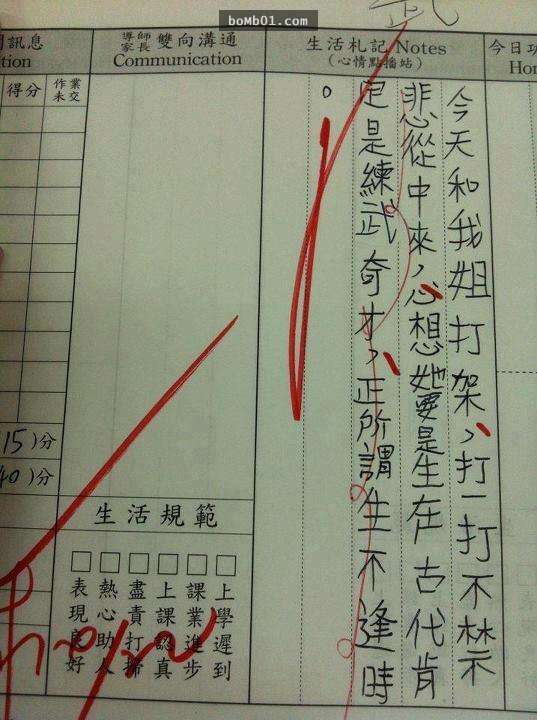 boMb01.com
武
今日
Hor
生活札記 Notes
(心情點播站)
今天和我姐打架,打一打不禁
悲從中來,心想她要是生在古代肯
定是練武奇才,正所謂生不逢時
。
導師
家長
雙向溝通
Communication
訊息
tion
得分
作業
未交
15)分
40)分
生活規範
上學遲到
課業進步
上課認真
盡責打掃
熱心助人
表現良好